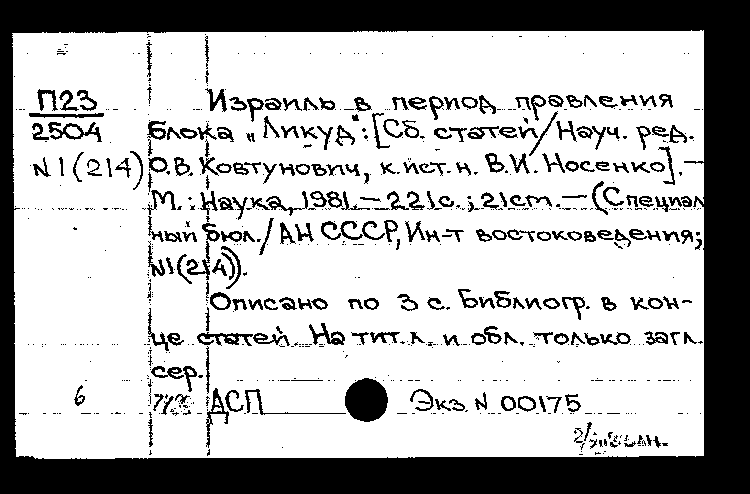 П23 Израиль в период правления
2504 блока „Ликуд“: [Сб. статей/Науч. ред.
N1(214) О.В. Ковтунович, к.ист.н. В.И. Носенко].—
М.: Наука, 1981.— 221с.; 21см.— (Специал
ный бюл./АН СССР, Ин-т востоковедения;
N1(214)).
Описано по 3 с. Библиогр. в кон-
це статей. На тит.л. и обл. только загл.
сер.
6 ДСП Экз N 00175